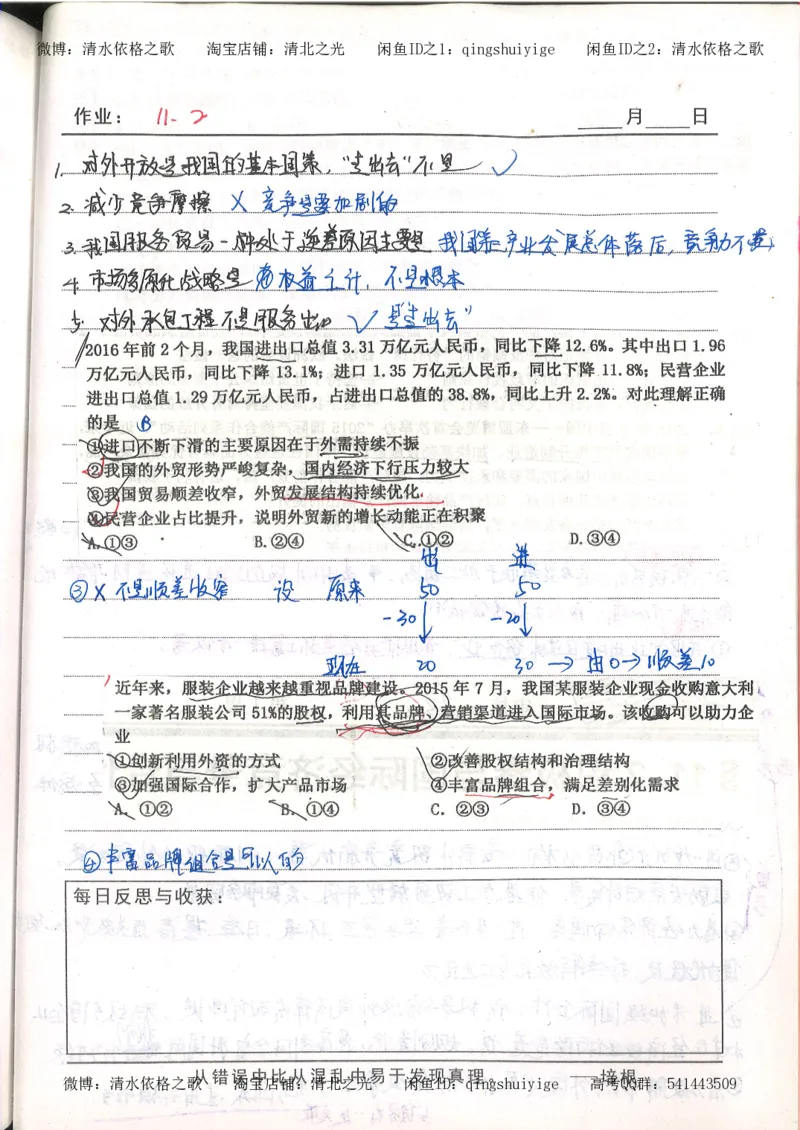 微博：清水依格之歌 淘宝店铺：清北之光 闲鱼ID之1：qingshuiyige 闲鱼ID之2：清水依格之歌
作业： 11-2 月 日
1. 对外开放是我国的基本国策，"走出去"不是 ✓
2. 减少竞争摩擦 X 竞争是要加剧的
3. 我国服务贸易一种处于逆差原因主要是 我国第三产业发展总体落后，竞争力不强
4. 市场多原化战略是 权益之计，不是根本
5. 对外承包工程不是服务出口 ✓ 是"走出去"
2016 年前 2 个月，我国进出口总值 3.31 万亿元人民币，同比下降 12.6%。其中出口 1.96
万亿元人民币，同比下降 13.1%；进口 1.35 万亿元人民币，同比下降 11.8%；民营企业
进出口总值 1.29 万亿元人民币，占进出口总值的 38.8%，同比上升 2.2%。对此理解正确
的是 B
①进口不断下滑的主要原因在于外需持续不振
②我国的外贸形势严峻复杂，国内经济下行压力较大
③我国贸易顺差收窄，外贸发展结构持续优化
④民营企业占比提升，说明外贸新的增长动能正在积聚
A.①③ B.②④ C.①② D.③④
出 进
③X 不是顺差收窄 设 原来 50 50
-30 -20
现在 20 30 → 由0→顺差10
近年来，服装企业越来越重视品牌建设。2015 年 7 月，我国某服装企业现金收购意大利
一家著名服装公司 51%的股权，利用其品牌、营销渠道进入国际市场。该收购可以助力企
业
①创新利用外资的方式 ②改善股权结构和治理结构
③加强国际合作，扩大产品市场 ④丰富品牌组合，满足差别化需求
A. ①② B. ①④ C. ②③ D. ③④
④丰富品牌组合是可以的
每日反思与收获：
从错误中比从混乱中易于发现真理 培根
微博：清水依格之歌 淘宝店铺：清北之光 闲鱼ID：qingshuiyige 高考QQ群：541443509